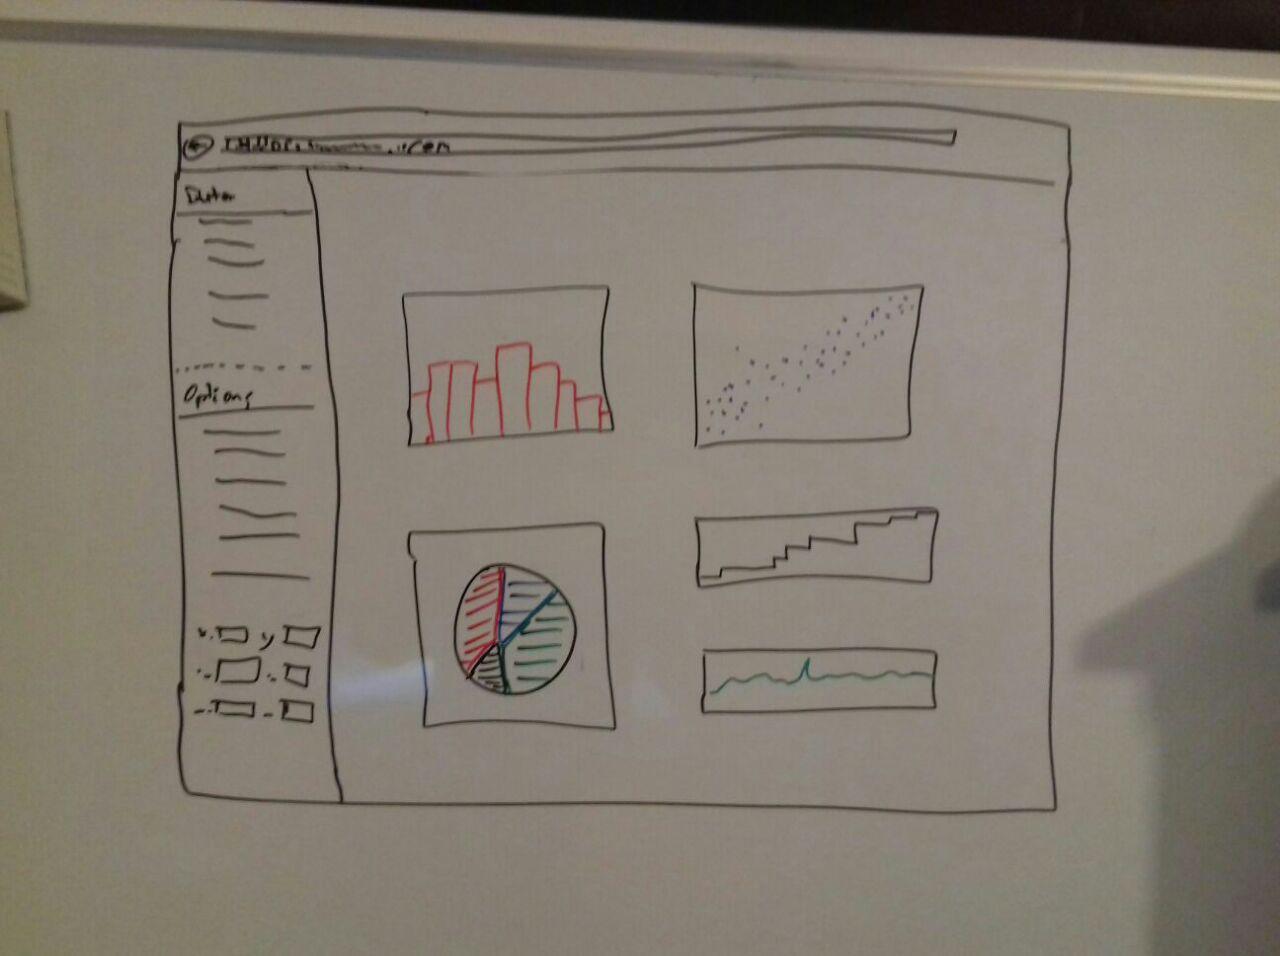 Data
Options
x
y